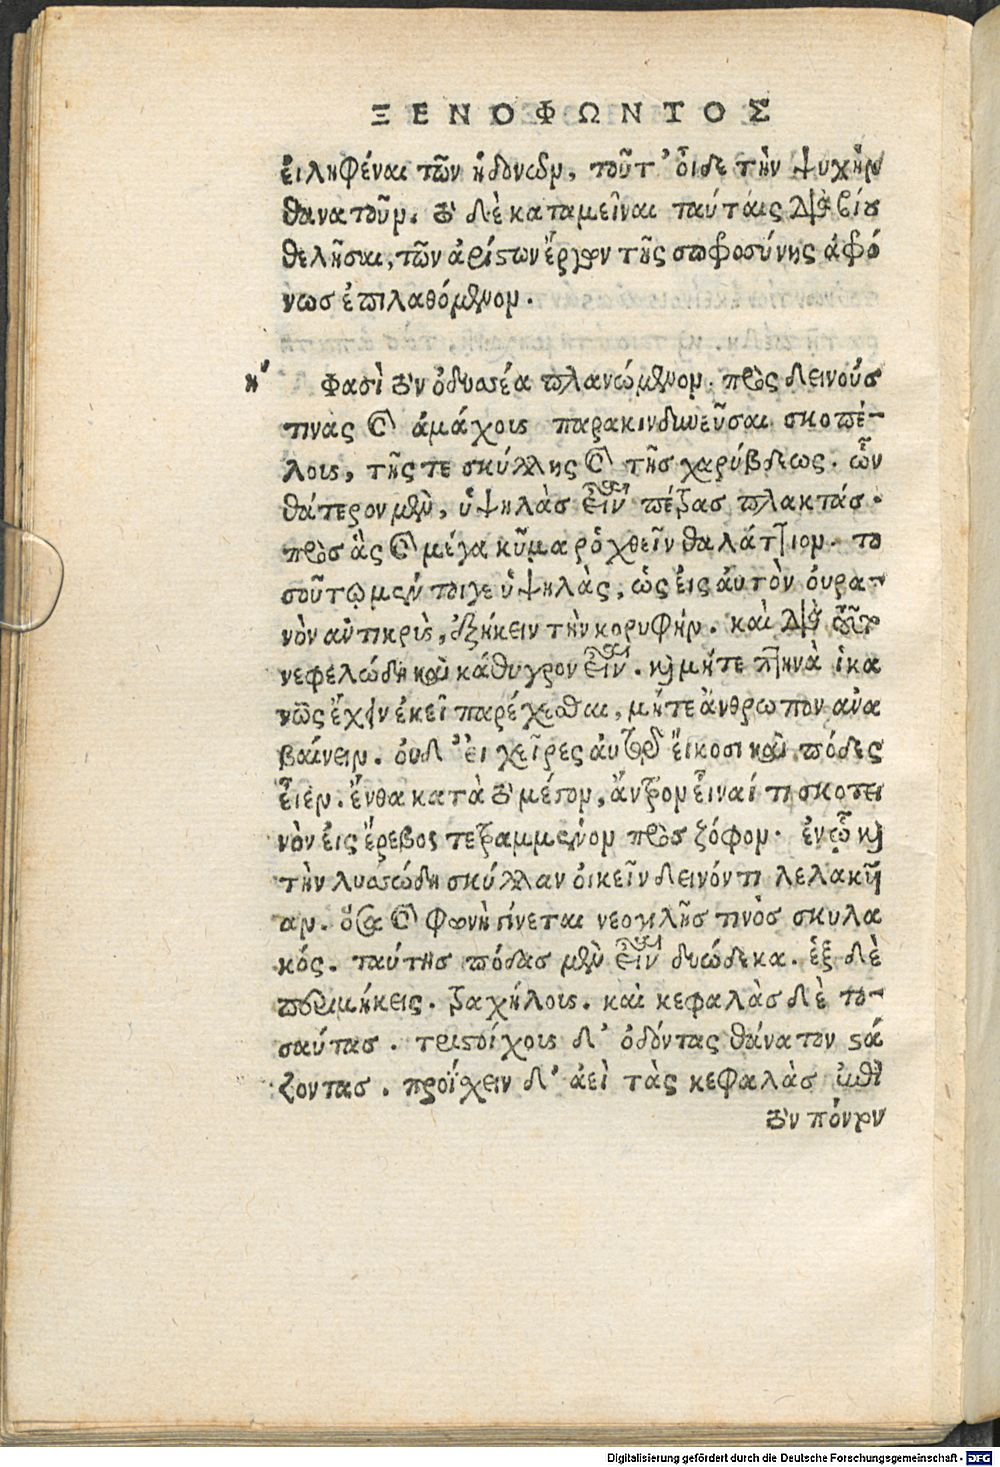 ΞΕΝΟΦΩΝΤΟΣ
εἰληφέναι τῶν ἡδονῶν, τοῦτ' οἶδε τὴν ψυχὴν
θανατοῦν. τὸ δὲ καταμεῖναι ταύταις διὰ βίου
θελῆσαι, τῶν ἀρίστων ἔργων τῆς σωφροσύνης ἀφό
νως ἐπιλαθόμενον.
η΄ Φασὶ τὸν ὀδυσσέα πλανώμενον. πρὸς δεινούς
τινας καὶ ἀμάχοις παρακινδυνεῦσαι σκοπέ-
λοις, τῆς τε σκύλλης καὶ τῆς χαρύβδεως. ὧν
θάτερον μὲν, ὑψηλὰς εἶναι πέτρας πλακτάς.
πρὸς ἃς καὶ μέγα κῦμα ῥοχθεῖν θαλάττιον. το
σοῦτῳ μέν τοιγε ὑψηλὰς, ὡς εἰς αὐτὸν ουρα-
νὸν αὐτικρὺς, ἐξήκειν τὴν κορυφήν. καὶ διὰ τοῦτο
νεφελώδη καὶ κάθυγρον εἶναι. καὶ μήτε πτηνὰ ἱκα
νῶς ἔχειν ἐκεῖ παρέχεσθαι, μήτε ἄνθρωπον ανα
βαίνειν. ουδ' ἐι χεῖρες ἀυτῷ ἔικοσι καὶ πόδες
εἶεν. ἔνθα κατὰ τὸ μέσον, ἄντρον εἶναί τι σκοτει
νὸν εἰς ἔρεβος τετραμμένον πρὸς ζόφον. ἐν ᾧ καὶ
τὴν λυσσώδη σκύλλαν οἰκεῖν δεινόν τι λελακυῖ
αν. ὅσα καὶ φωνὴ γίνεται νεογιλῆς τινὸς σκυλα
κός. ταύτης πόδας μὲν εἶναι δυώδεκα. ἓξ δὲ
προμήκεις. τραχήλοις. καὶ κεφαλὰς δὲ το-
σαύτας. τριστοίχοις δ' ὀδόντας θάνατον στά
ζοντας. προΐχειν δ' ἀεὶ τὰς κεφαλὰς ἐπὶ
τὸν πόντον
Digitalisierung gefördert durch die Deutsche Forschungsgemeinschaft - DFG